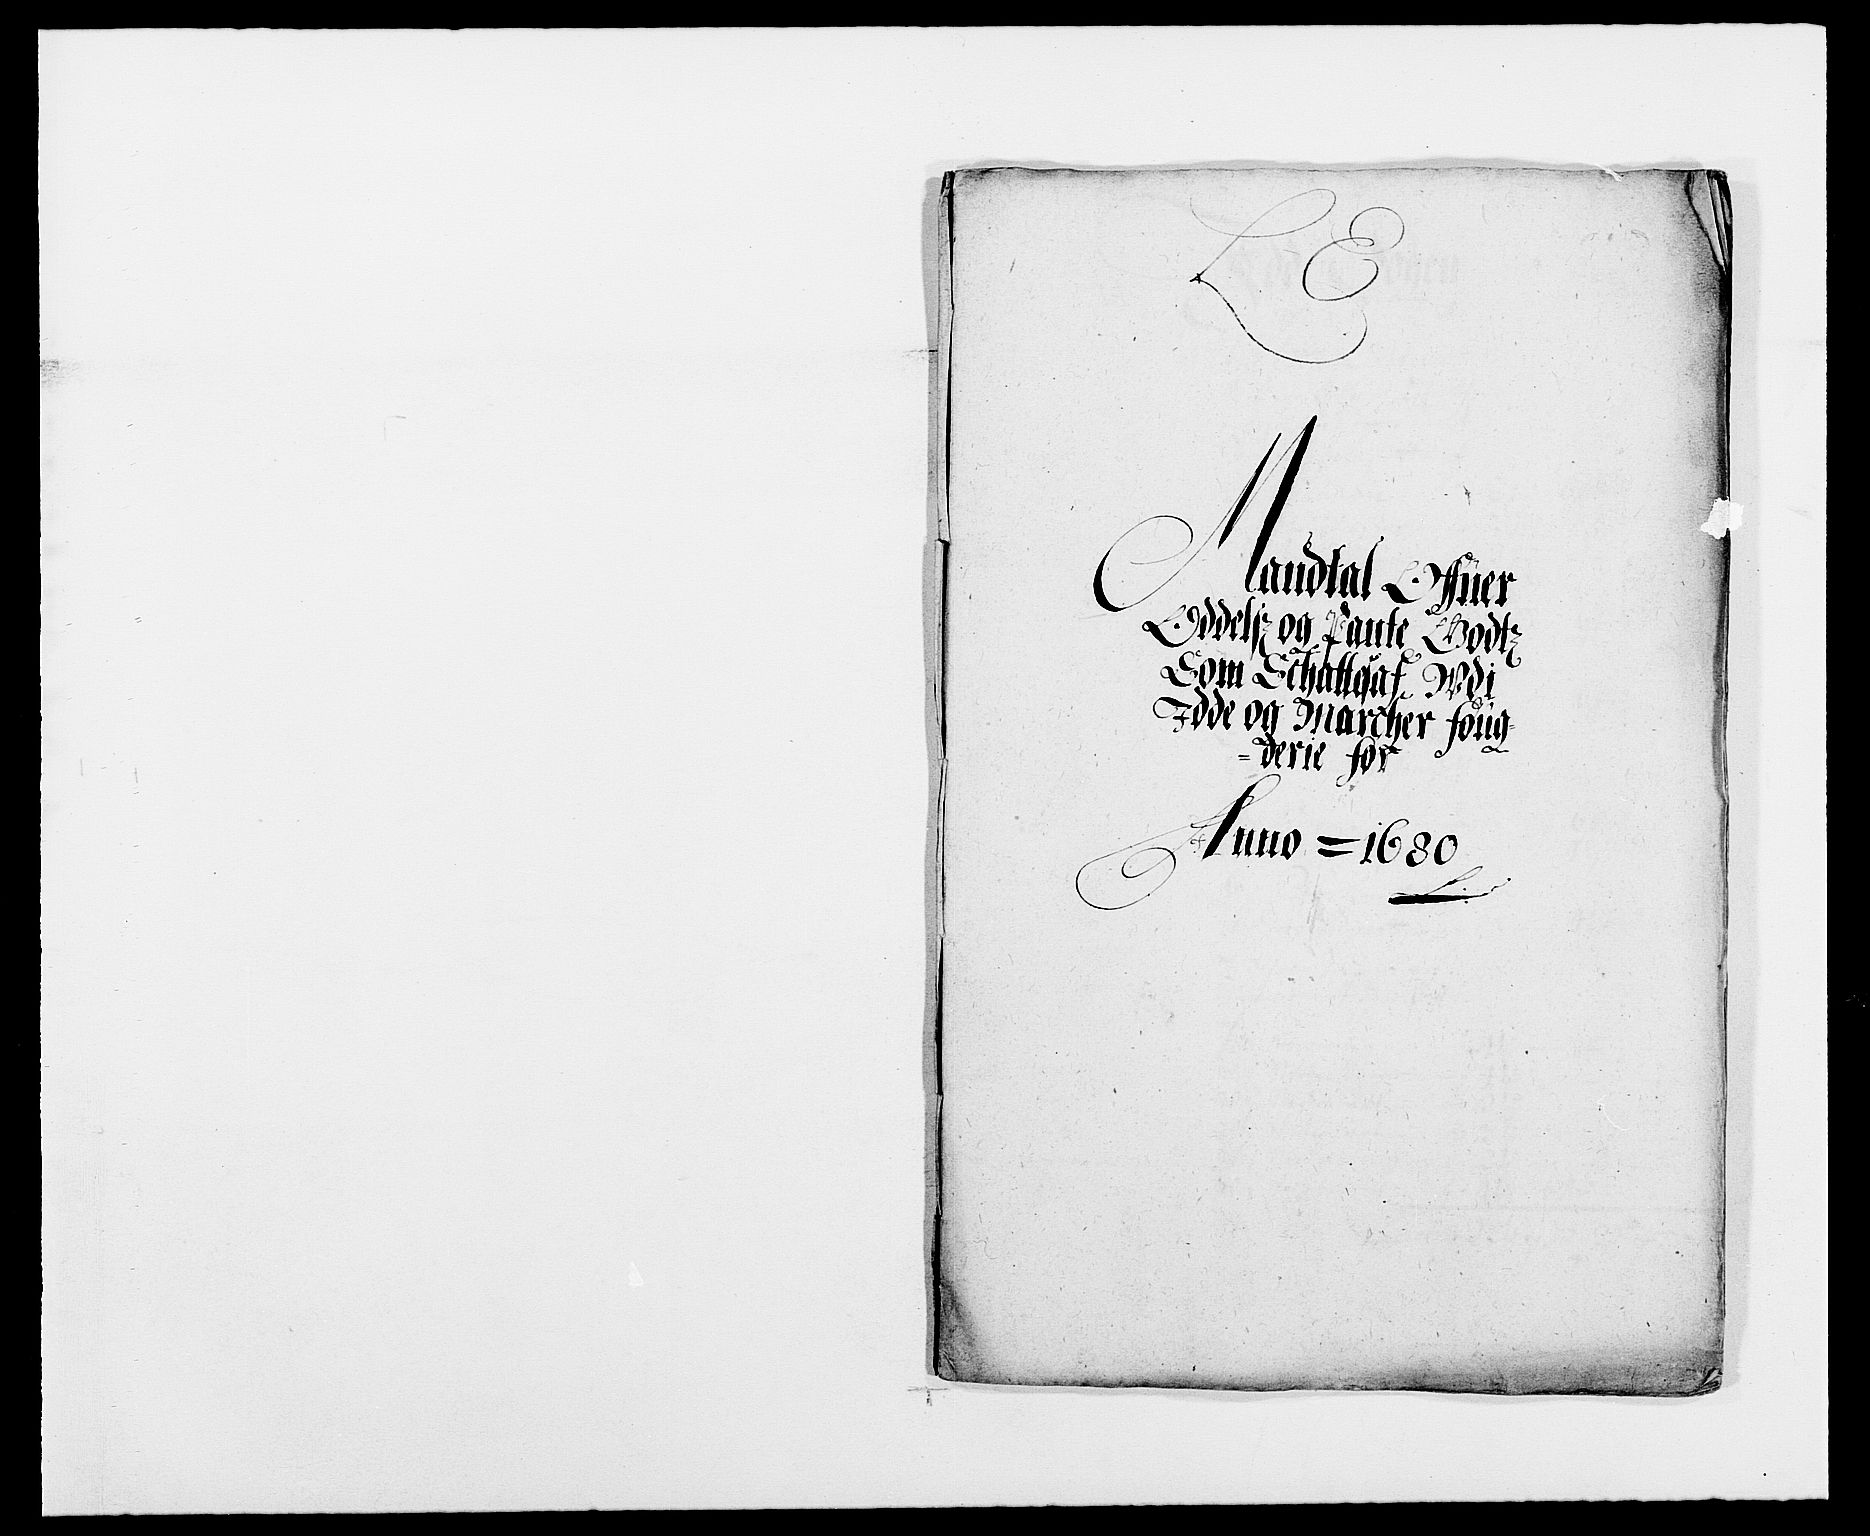 L E
Mandtal Offuer
Oddelsz og Pante Godtz
Som Schattgaf Vdi
Idde og Marcher foug-
=derie for
Anno = 1680